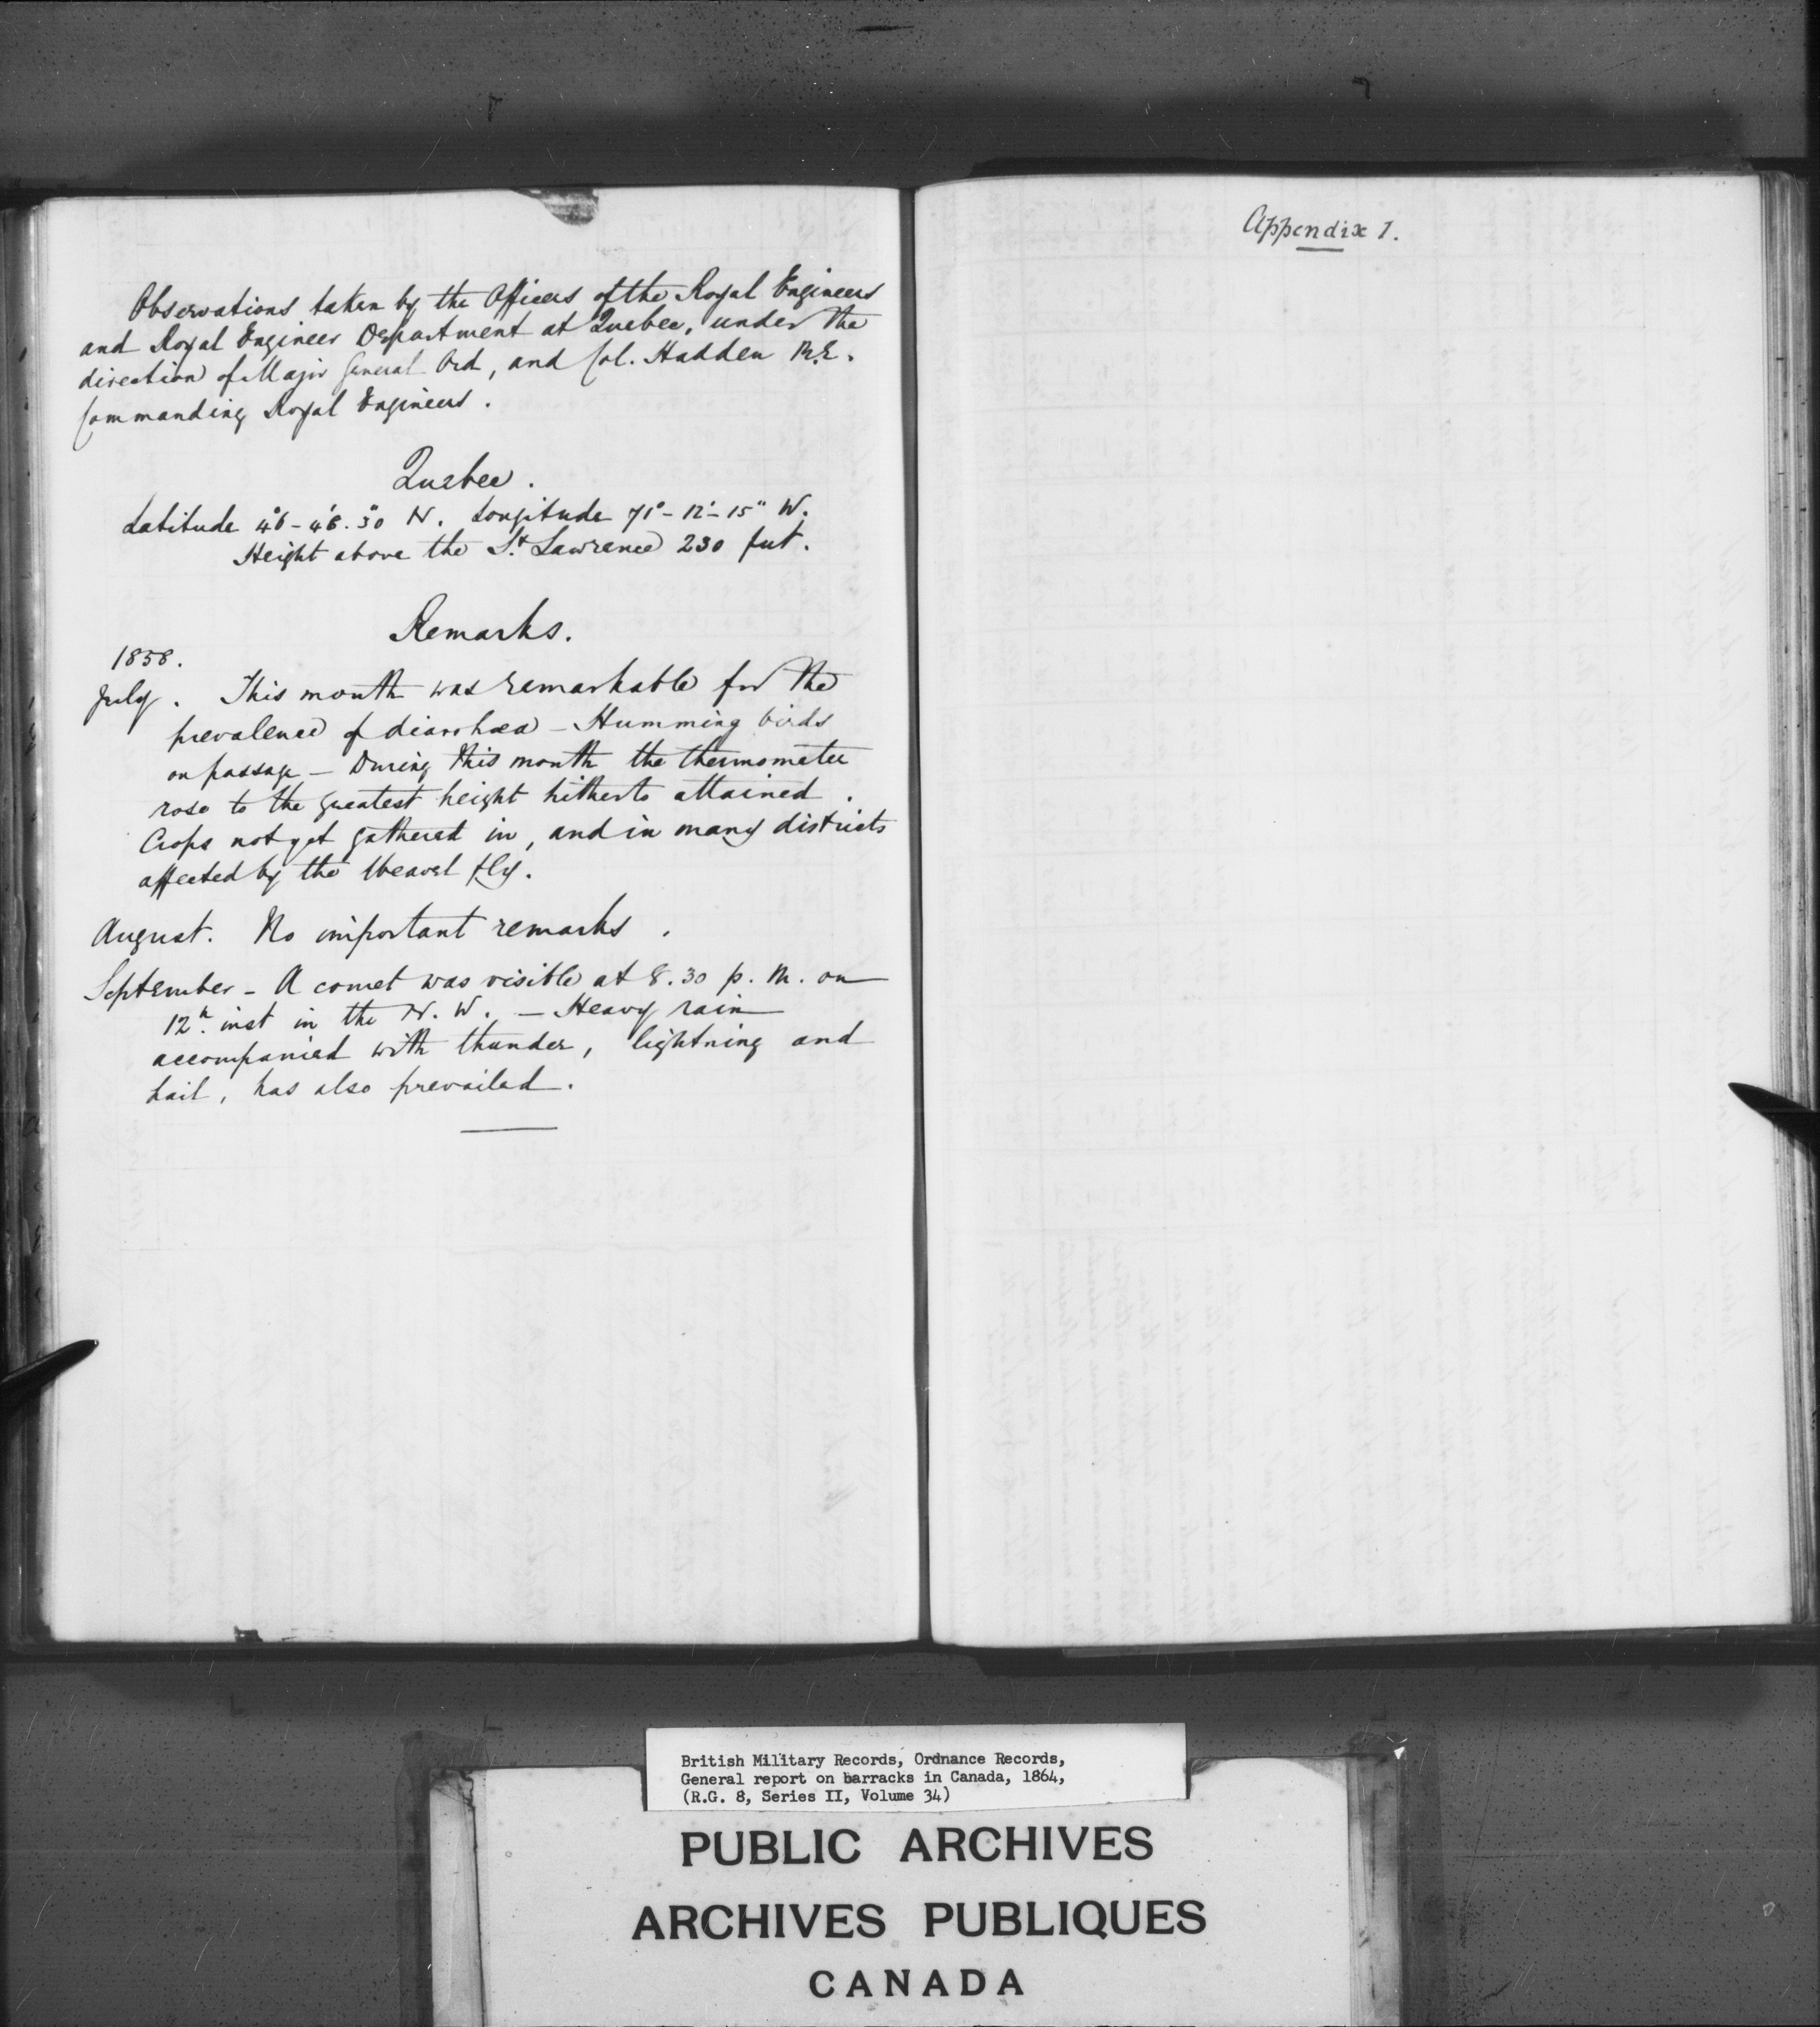 Observations taken by the Officers of the Royal Engineers
and Royal Engineer Department at Quebec, under the
direction of Major General Ord, and Col. Hadden R.E.
Commanding Royal Engineers.
Quebec.
Latitude 46°-48'.30" N. Longitude 71°-12'-15" W.
Height above the St. Lawrence 230 feet.
Remarks.
1858.
July. This month was remarkable for the
prevalence of diarrhœa - Humming birds
on passage - During this month the thermometer
rose to the greatest height hitherto attained.
Crops not yet gathered in, and in many districts
affected by the Weavel fly.
August. No important remarks.
September - A comet was visible at 8.30 p.m. on
12th. inst in the N.W. - Heavy rain
accompanied with thunder, lightning and
hail, has also prevailed.
Appendix 1.
British Military Records, Ordnance Records,
General report on barracks in Canada, 1864,
(R.G. 8, Series II, Volume 34)
PUBLIC ARCHIVES
ARCHIVES PUBLIQUES
CANADA